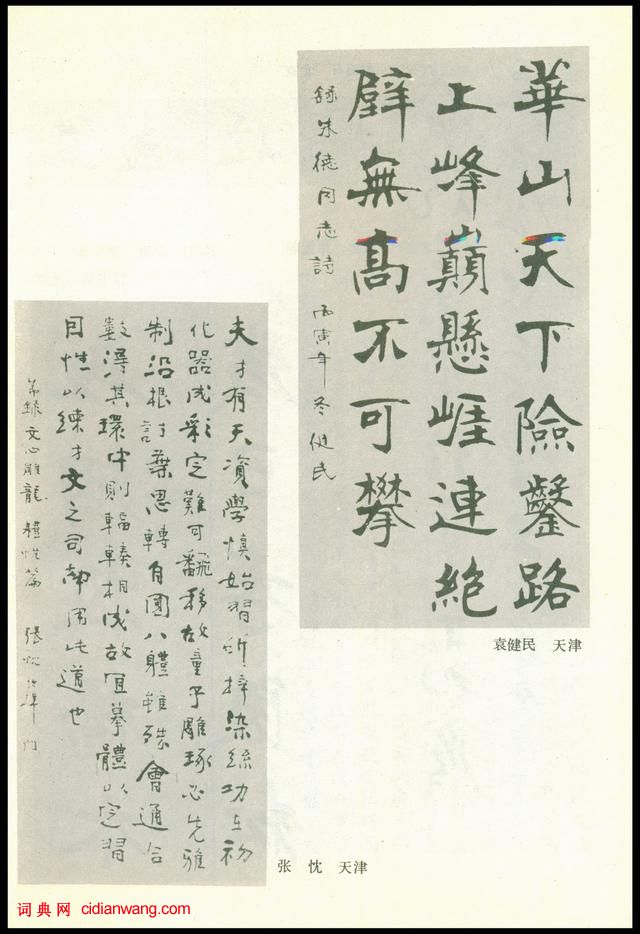 華山天下險鑿路
上峰巔懸崕連絕
壁無髙不可攀
錄朱德同志詩 丙寅年冬健民
袁健民 天津
夫才有天資學慎始習斲梓染絲功在初
化器成彩定難可翻移故童子雕琢必先雅
制沿根討葉思轉自圓八體雖殊會通合
數得其環中則輻湊相成故宜摹體以定習
因性以練才文之司南用此道也
節錄文心雕龍體性篇 張忱於津門
张 忱 天津
词典网 cidianwang.com